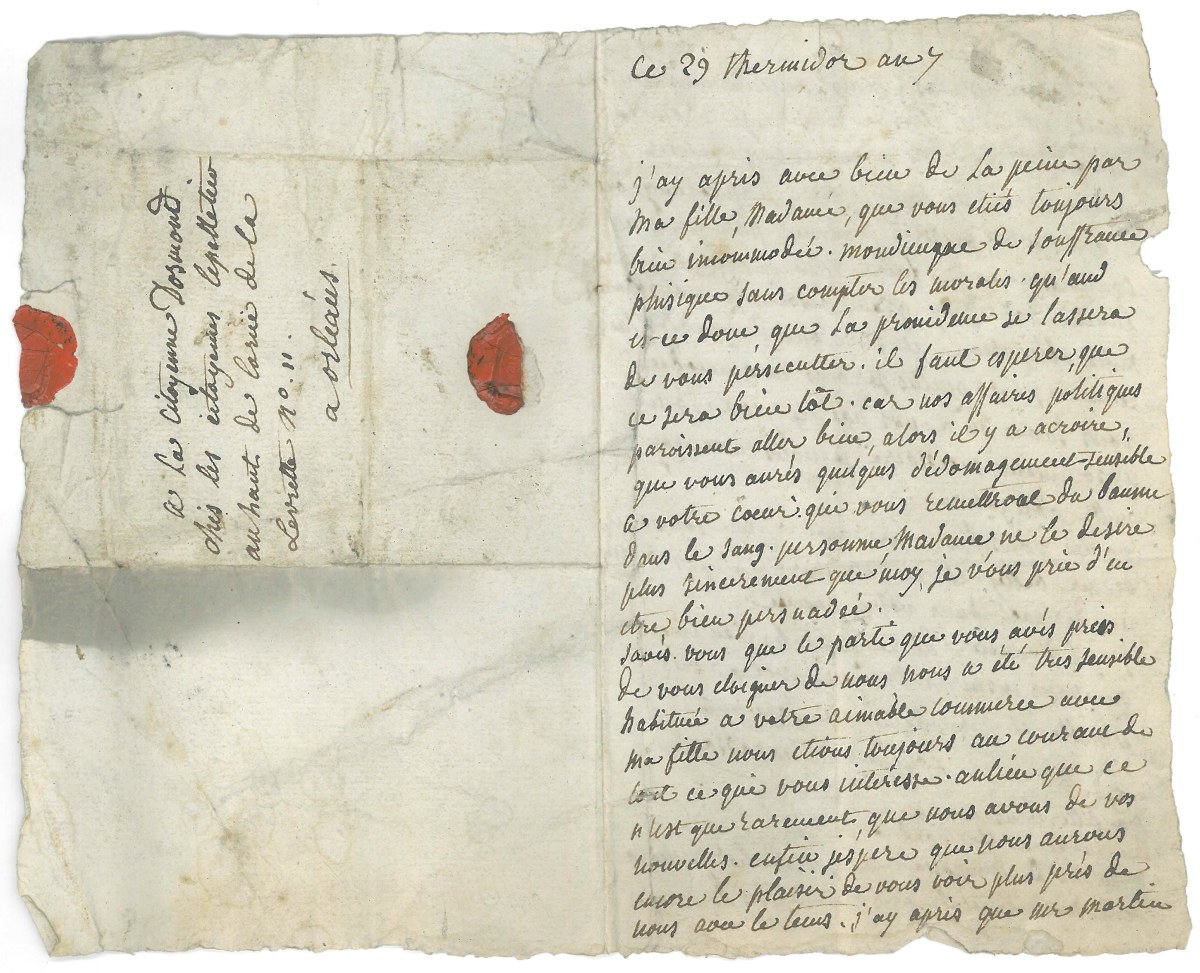 a La Citoyenne Dosmond
chés les citoyenes lepelletier
au haut de Larue de la
Levrette no. 11.
a orleées.
Ce 29 thermidor an 7
j'ay apris avec bien de La peine par
Ma fille, Madame, que vous etiés toujours
bien incommodée. mondieuque de souffrance
phisique sans compter les morales. qu'and
es-ce donc, que La providence se lassera
de vous pérsecutter. il faut esperer, que
ce sera bien tôt. car nos affaires politiques
paroissent aller bien, alors il y a acroire,
que vous aurés quelques dédomagement sensible
a votre coeur. qui vous remettront du baume
dans le sang. personne Madame ne le desire
plus sincerement que moy, je vous prie d'en
etre bien persuadée.
savés. vous que le parti que vous avés pris
de vous eloigner de nous nous a été tres sensible
habituée a votre aimable commerce avec
ma fille nous etions toujours au courant de
tout ce qui vous intéresse. aulieu que ce
n'est que rarement, que nous avons de vos
nouvelles. enfin jéspere que nous aurons
encore le plaisir de vous voir plus prés de
nous avec le tems. j'ay apris que mr martin